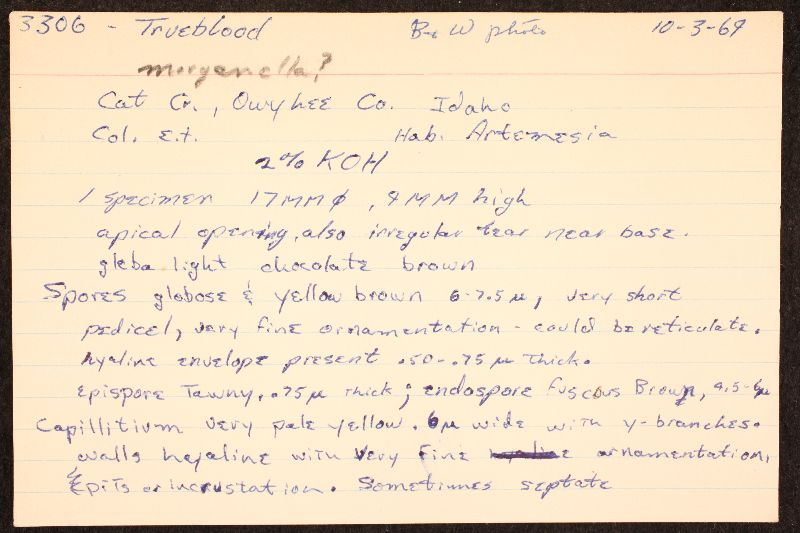 3306 - Trueblood B & W photo 10-3-69
morganella?
Cat Cr., Owyhee Co. Idaho
Col. E.t. Hab. Artemesia
2% KOH
1 specimen 17MMϕ, 9MM high
apical opening, also irregular tear near base.
gleba light chocolate brown
Spores globose & yellow brown 6-7.5 µ, very short
pedicel, very fine ornamentation - could be reticulate.
hyaline envelope present .50-.75 µ Thick.
epispore Tawny, .75µ thick; endospore fuscous Brown, 4.5-6µ
Capillitium very pale yellow. 6µ wide with y-branches.
walls hyaline with very fine ornamentation,
& pits or incrustation. Sometimes septate